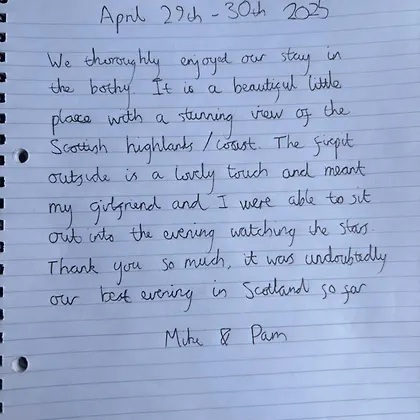 April 29th - 30th 2025
We thoroughly enjoyed our stay in
the bothy. It is a beautiful little
place with a stunning view of the
Scottish highlands / coast. The firepit
outside is a lovely touch and meant
my girlfriend and I were able to sit
out into the evening watching the stars.
Thank you so much, it was undoubtedly
our best evening in Scotland so far
Mike & Pam